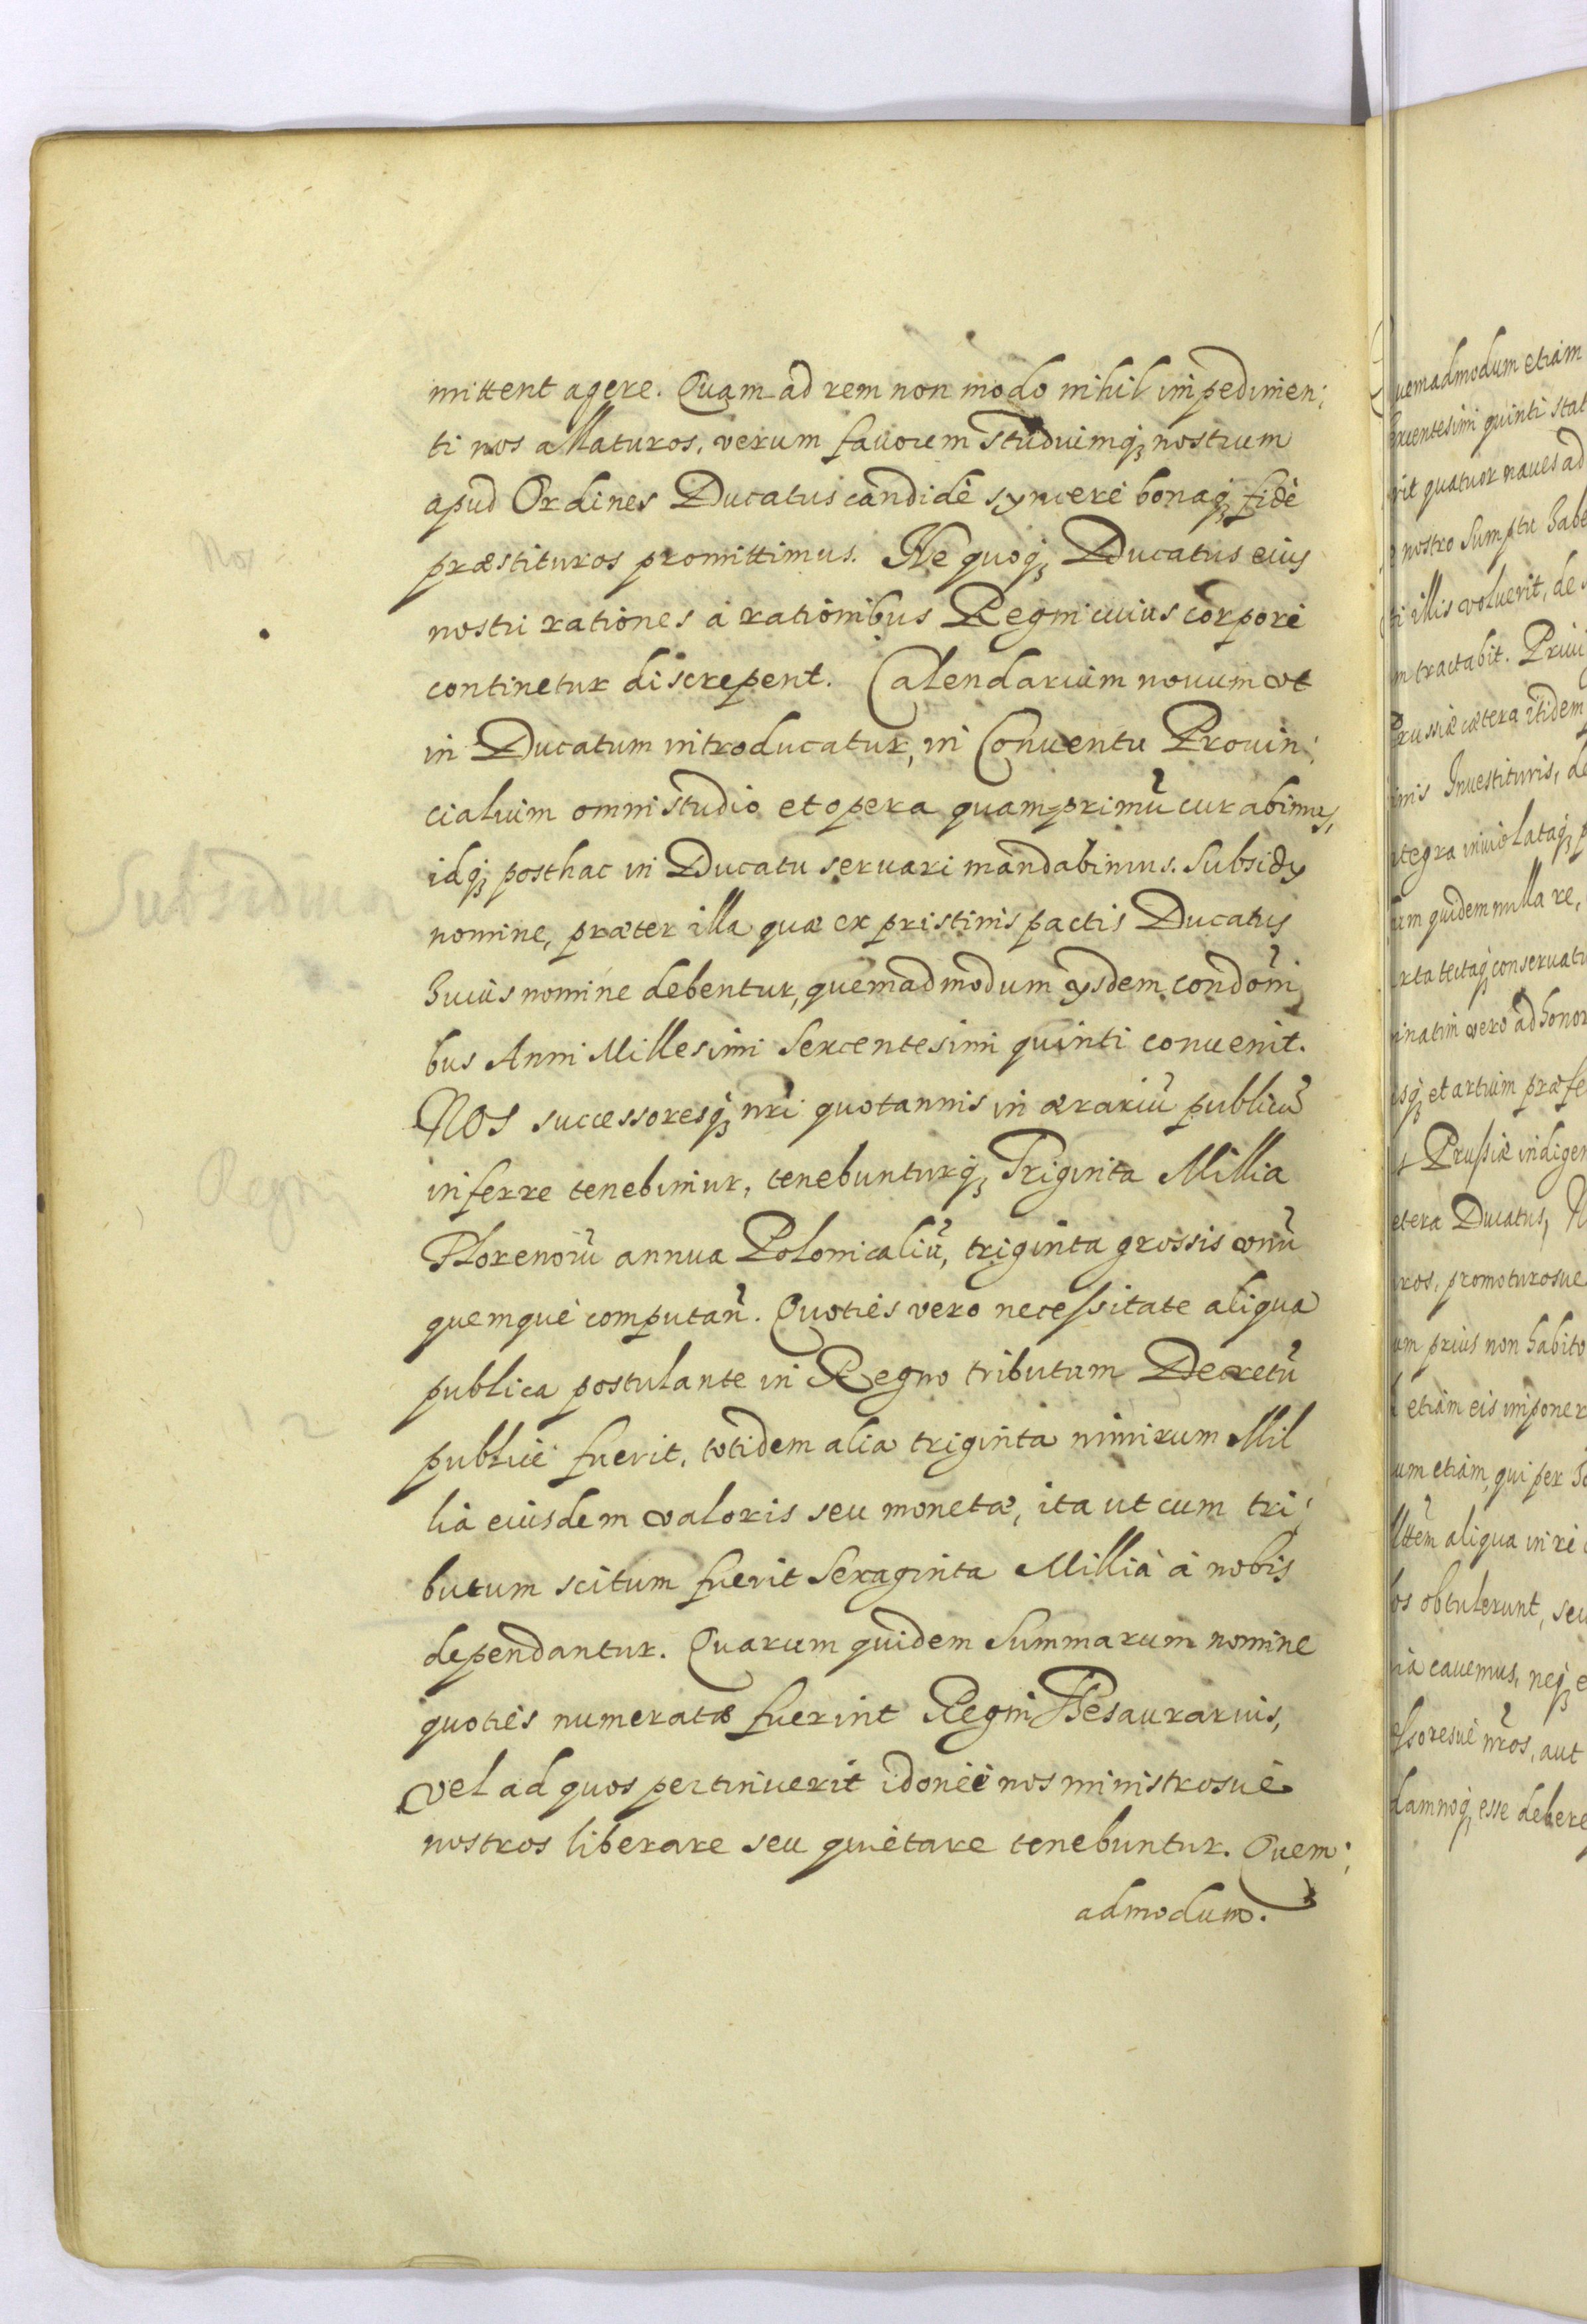 mittent agere. Quam ad rem non modo nihil impedimen:
ti nos allaturos, verum fauorem studiumq₃ nostrum
apud Ordines Ducatus candidè syncerè bonaq₃ fidè
præstituros promittimus. Ne quoq₃ Ducatus eius
nostri rationes à rationibus Regni cuius corpore
continetur discrepent. Calendarium nouum vt
in Ducatum introducatur, in Conuentu Prouin:
cialium omni studio et opera quamprimū curabimus,
idq₃ posthac in Ducatu seruari mandabimus. Subsidy
nomine, præter illa quæ ex pristinis pactis Ducatus
huius nomine debentur, quemadmodum ysdem condōni
bus Anni Millesimi Sexcentesimi quinti conuenit.
NOS successoresq₃ nr̃i quotannis in ærariū publicū
inferre tenebimur, tenebunturq₃ Triginta Millia
Florenorū annua Polonicaliū, triginta grossis vnū
quemque computañ. Quoties vero necessitate aliqua
publica postulante in Regno tributum Decretū
publice fuerit, totidem alia triginta nimirum Mil
lia eiusdem valoris seu monetæ, ita ut cum tri:
butum scitum fuerit Sexaginta Millia à nobis
dependantur. Quarum quidem Summarum nomine
quoties numeratæ fuerint Regni Thesaurarius,
vel ad quos pertinuerit idoneè nos ministrosuè
nostros liberare seu quietare tenebuntur. Quem:
admodum.
Nos
Subsidium
Regni
12
Quemadmodum etiam
Sexcentesimi quinti stat
quatuor naues ad
nostro Sumptu habe
illis voluerit, de
tractabit. Priui
Prussiæ cætera itidem
Inuestituris, de
integra inuiolataq₃ p
quidem nulla re,
tectaq₃ conseruatu
vero ad honor
et artium præfe
Prussiæ indigen
Ducatus, N
promoturosue
prius non habito
etiam eis imponer
etiam, qui per
aliqua in re
obtulerunt, seu
cauemus, neq₃ e
nr̃os, aut
damnoq₃ esse debere